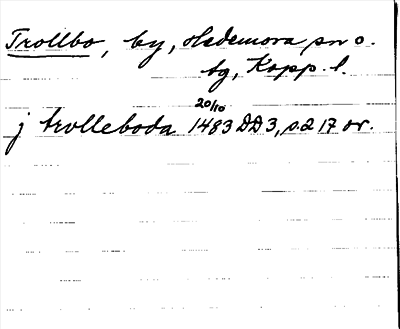 Trollbo, by, Hedemora sn o.
tg, Kopp. l.
j trolleboda 20/10 1483 DD 3, s. 217 or.